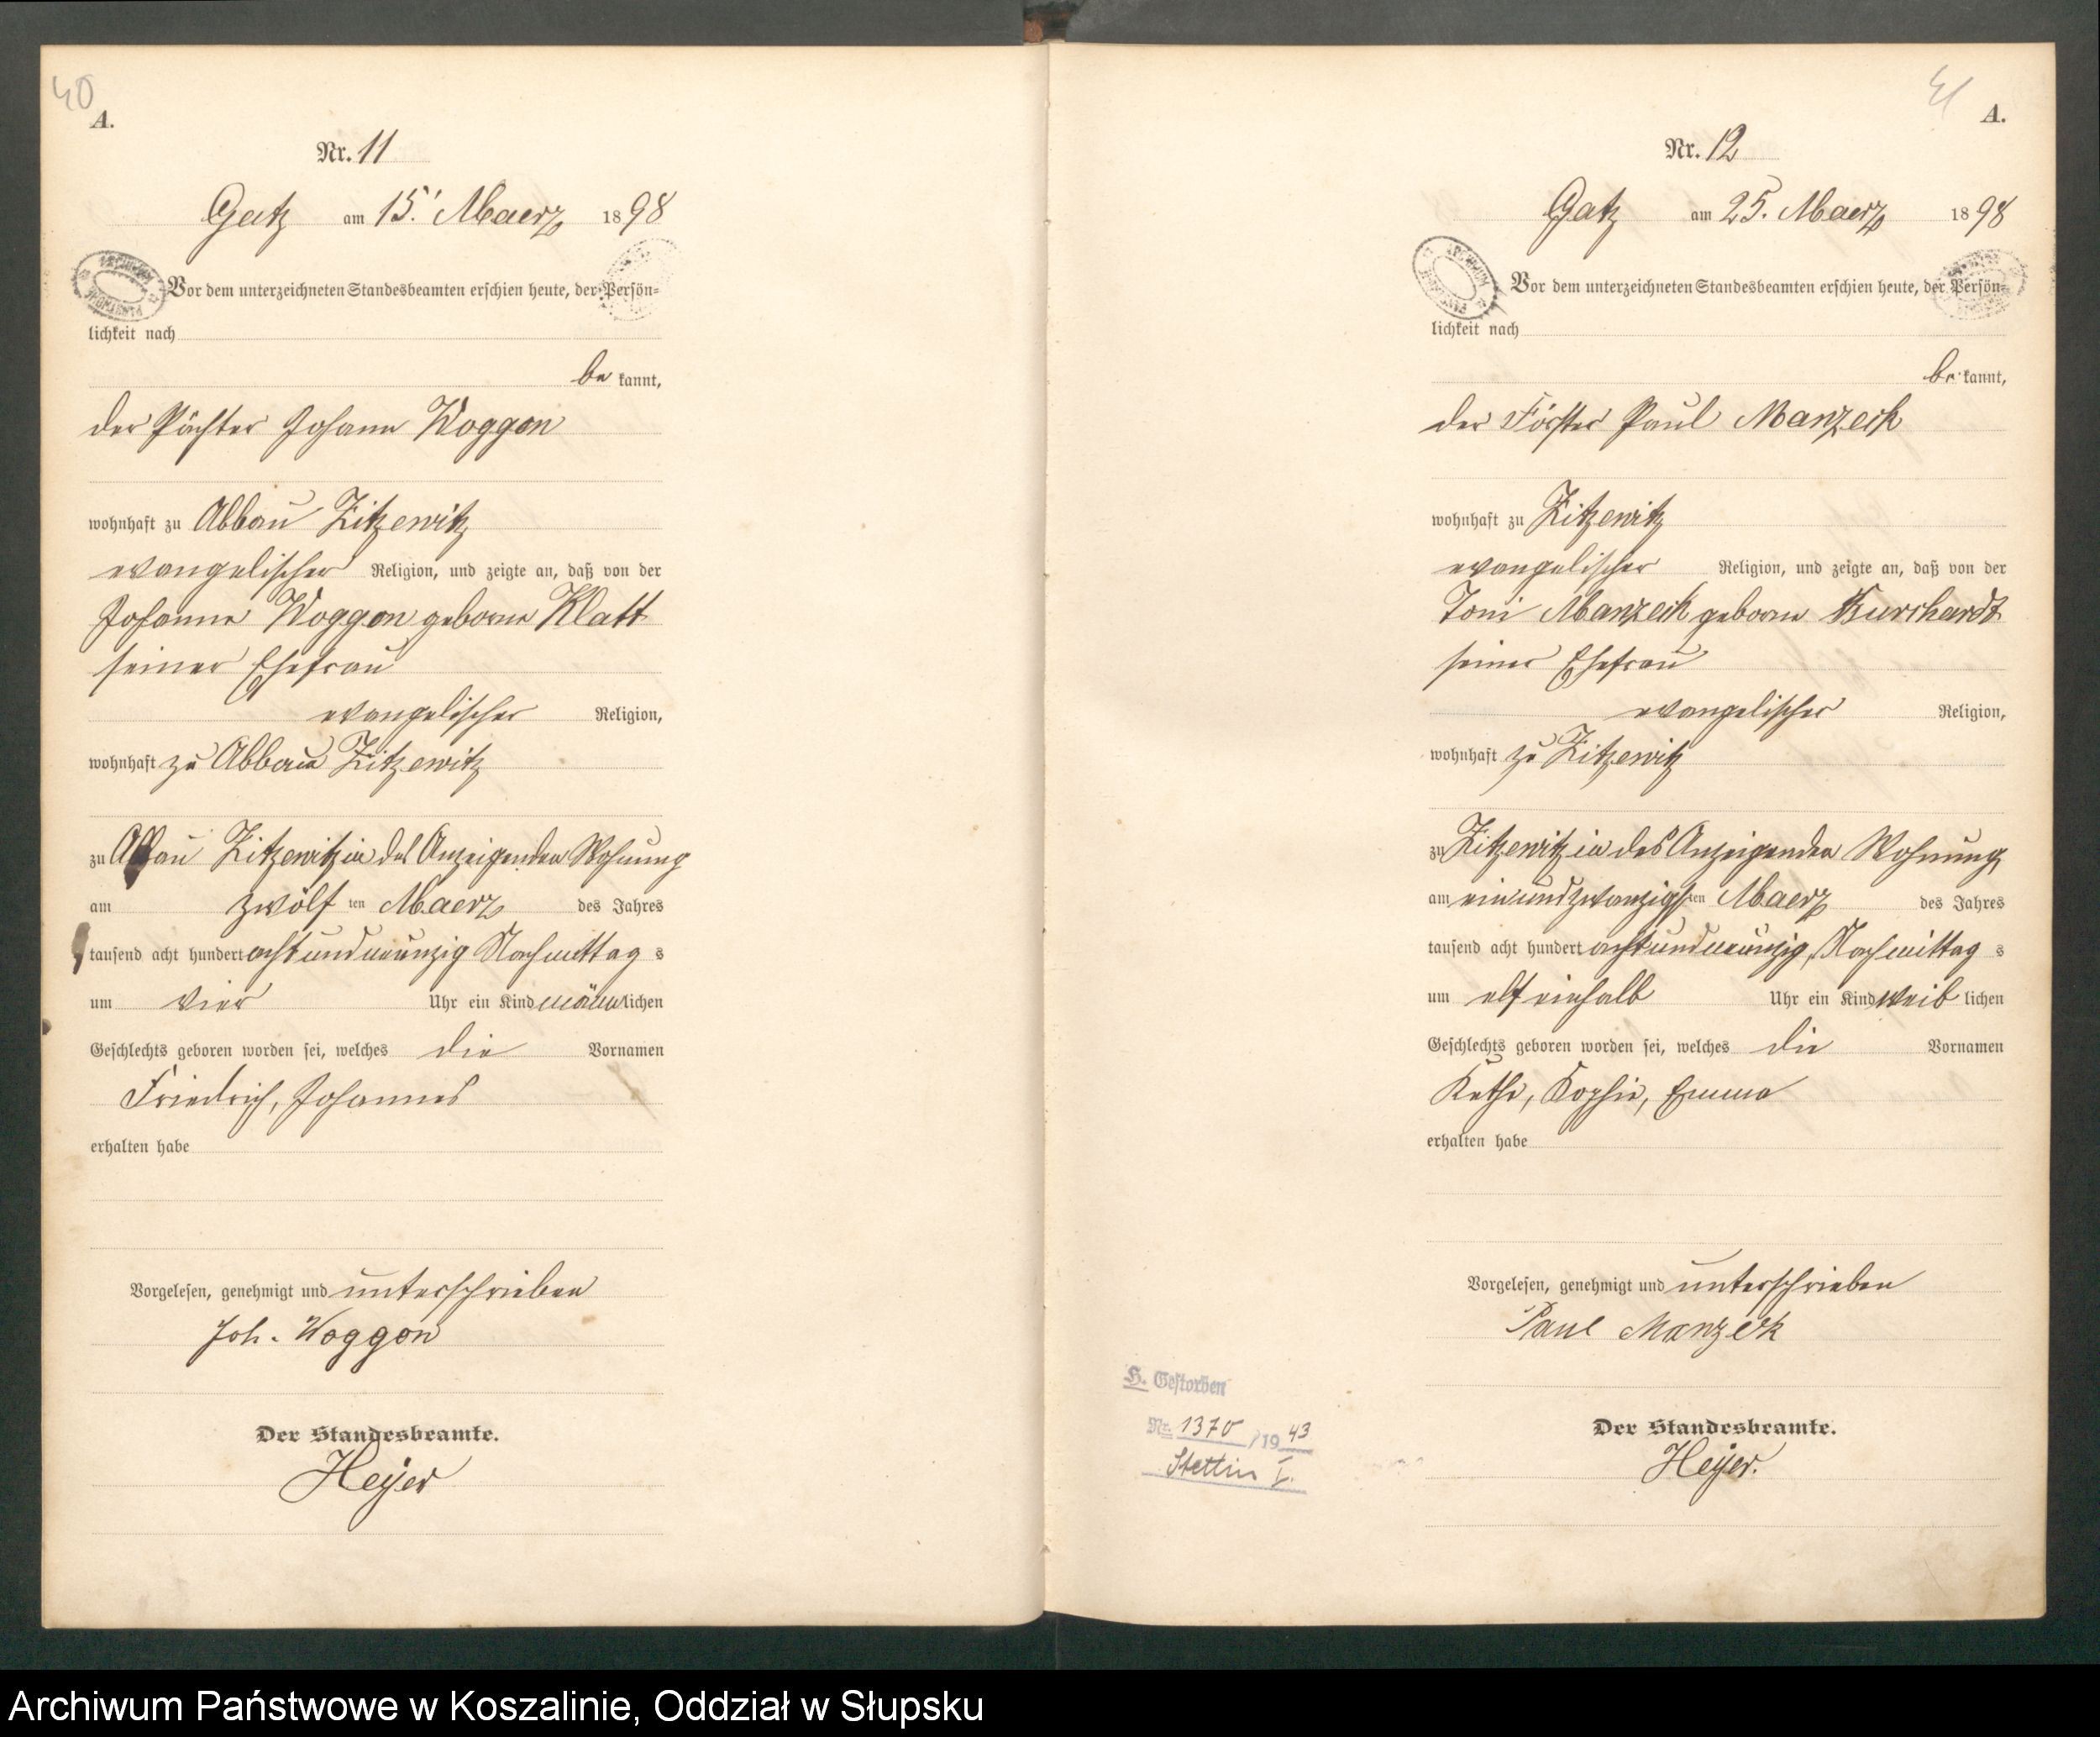 40
A.
Nr. 11
Gatz am 15. Maerz 1898
Vor dem unterzeichneten Standesbeamten erschien heute, der Persön-
lichkeit nach
be kannt,
der Pächter Johann Woggon
wohnhaft zu Abbau Zitzewitz
evangelischer Religion, und zeigte an, daß von der
Johanne Woggon geborne Klatt
seiner Ehefrau
evangelischer Religion,
wohnhaft zu Abbau Zitzewitz
zu Abbau Zitzewitz in des Anzeigenden Wohnung
am zwölf ten Maerz des Jahres
tausend acht hundert achtundneunzig Nachmittag s
um vier Uhr ein Kind männlichen
Geschlechts geboren worden sei, welches die Vornamen
Friedrich, Johannes
erhalten habe
Vorgelesen, genehmigt und unterschrieben
Joh. Woggon
Der Standesbeamte.
Heyer
41
A.
Nr. 12
Gatz am 25. Maerz 1898
Vor dem unterzeichneten Standesbeamten erschien heute, der Persön-
lichkeit nach
be kannt,
der Förster Paul Manzeck
wohnhaft zu Zitzewitz
evangelischer Religion, und zeigte an, daß von der
Toni Manzeck geborne Burchardt
seiner Ehefrau
evangelischer Religion,
wohnhaft zu Zitzewitz
zu Zitzewitz in des Anzeigenden Wohnung
am einundzwanzigsten Maerz des Jahres
tausend acht hundert achtundneunzig, Nachmittag s
um elf einhalb Uhr ein Kind weib lichen
Geschlechts geboren worden sei, welches die Vornamen
Kethe, Sophie, Emma
erhalten habe
Vorgelesen, genehmigt und unterschrieben
Paul Manzeck
Der Standesbeamte.
Heyer.
H. Gestorben
Nr. 1370 / 19 43
Stettin I.
Archiwum Państwowe w Koszalinie, Oddział w Słupsku